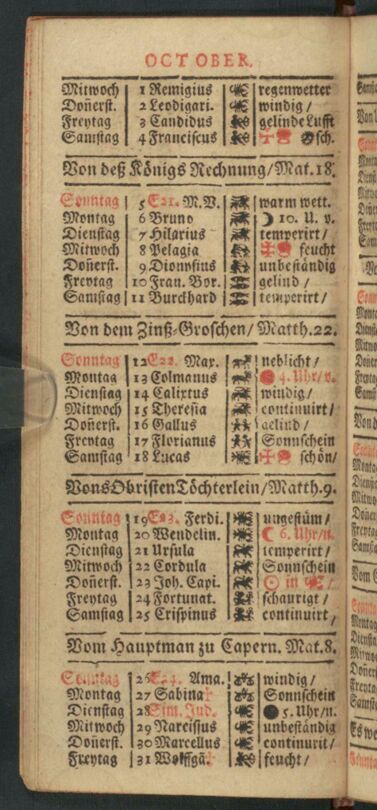 OCTOBER.
Mitwoch 1 Remigius regenwetter
Doñerst. 2 Leodigari. windig /
Freytag 3 Candidus gelinde Lufft
Samstag 4 Franciscus sch.
Von deß Königs Rechnung / Mat. 18.
Sonntag 5 E21. M. B. warm wett.
Montag 6 Bruno 10. U. v.
Dienstag 7 Hilarius temperirt /
Mitwoch 8 Pelagia feucht
Doñerst. 9 Dionysius unbeständig
Freytag 10 Fran. Bor. gelind /
Samstag 11 Burckhard temperirt /
Von dem Zinß-Groschen / Matth. 22.
Sonntag 12 E22. Max. neblicht /
Montag 13 Colmanus 4. Uhr / v.
Dienstag 14 Calixtus windig /
Mitwoch 15 Theresia continuirt /
Doñerst. 16 Gallus gelind /
Freytag 17 Florianus Sonnschein
Samstag 18 Lucas schön /
Vons Obristen Töchterlein / Matth. 9.
Sonntag 19 E23. Ferdi. ungestüm /
Montag 20 Wendelin. 6. Uhr / n.
Dienstag 21 Ursula temperirt /
Mitwoch 22 Cordula Sonnschein
Doñerst. 23 Joh. Capi. in
Freytag 24 Fortunat. schaurigt /
Samstag 25 Crispinus continuirt /
Vom Hauptman zu Capern. Mat. 8.
Sonntag 26 E24. Ama. windig /
Montag 27 Sabina Sonnschein
Dienstag 28 Sim. Jud. 5. Uhr / n.
Mitwoch 29 Narcissus unbeständig
Doñerst. 30 Marcellus continuirt /
Freytag 31 Wolffgã. feucht /